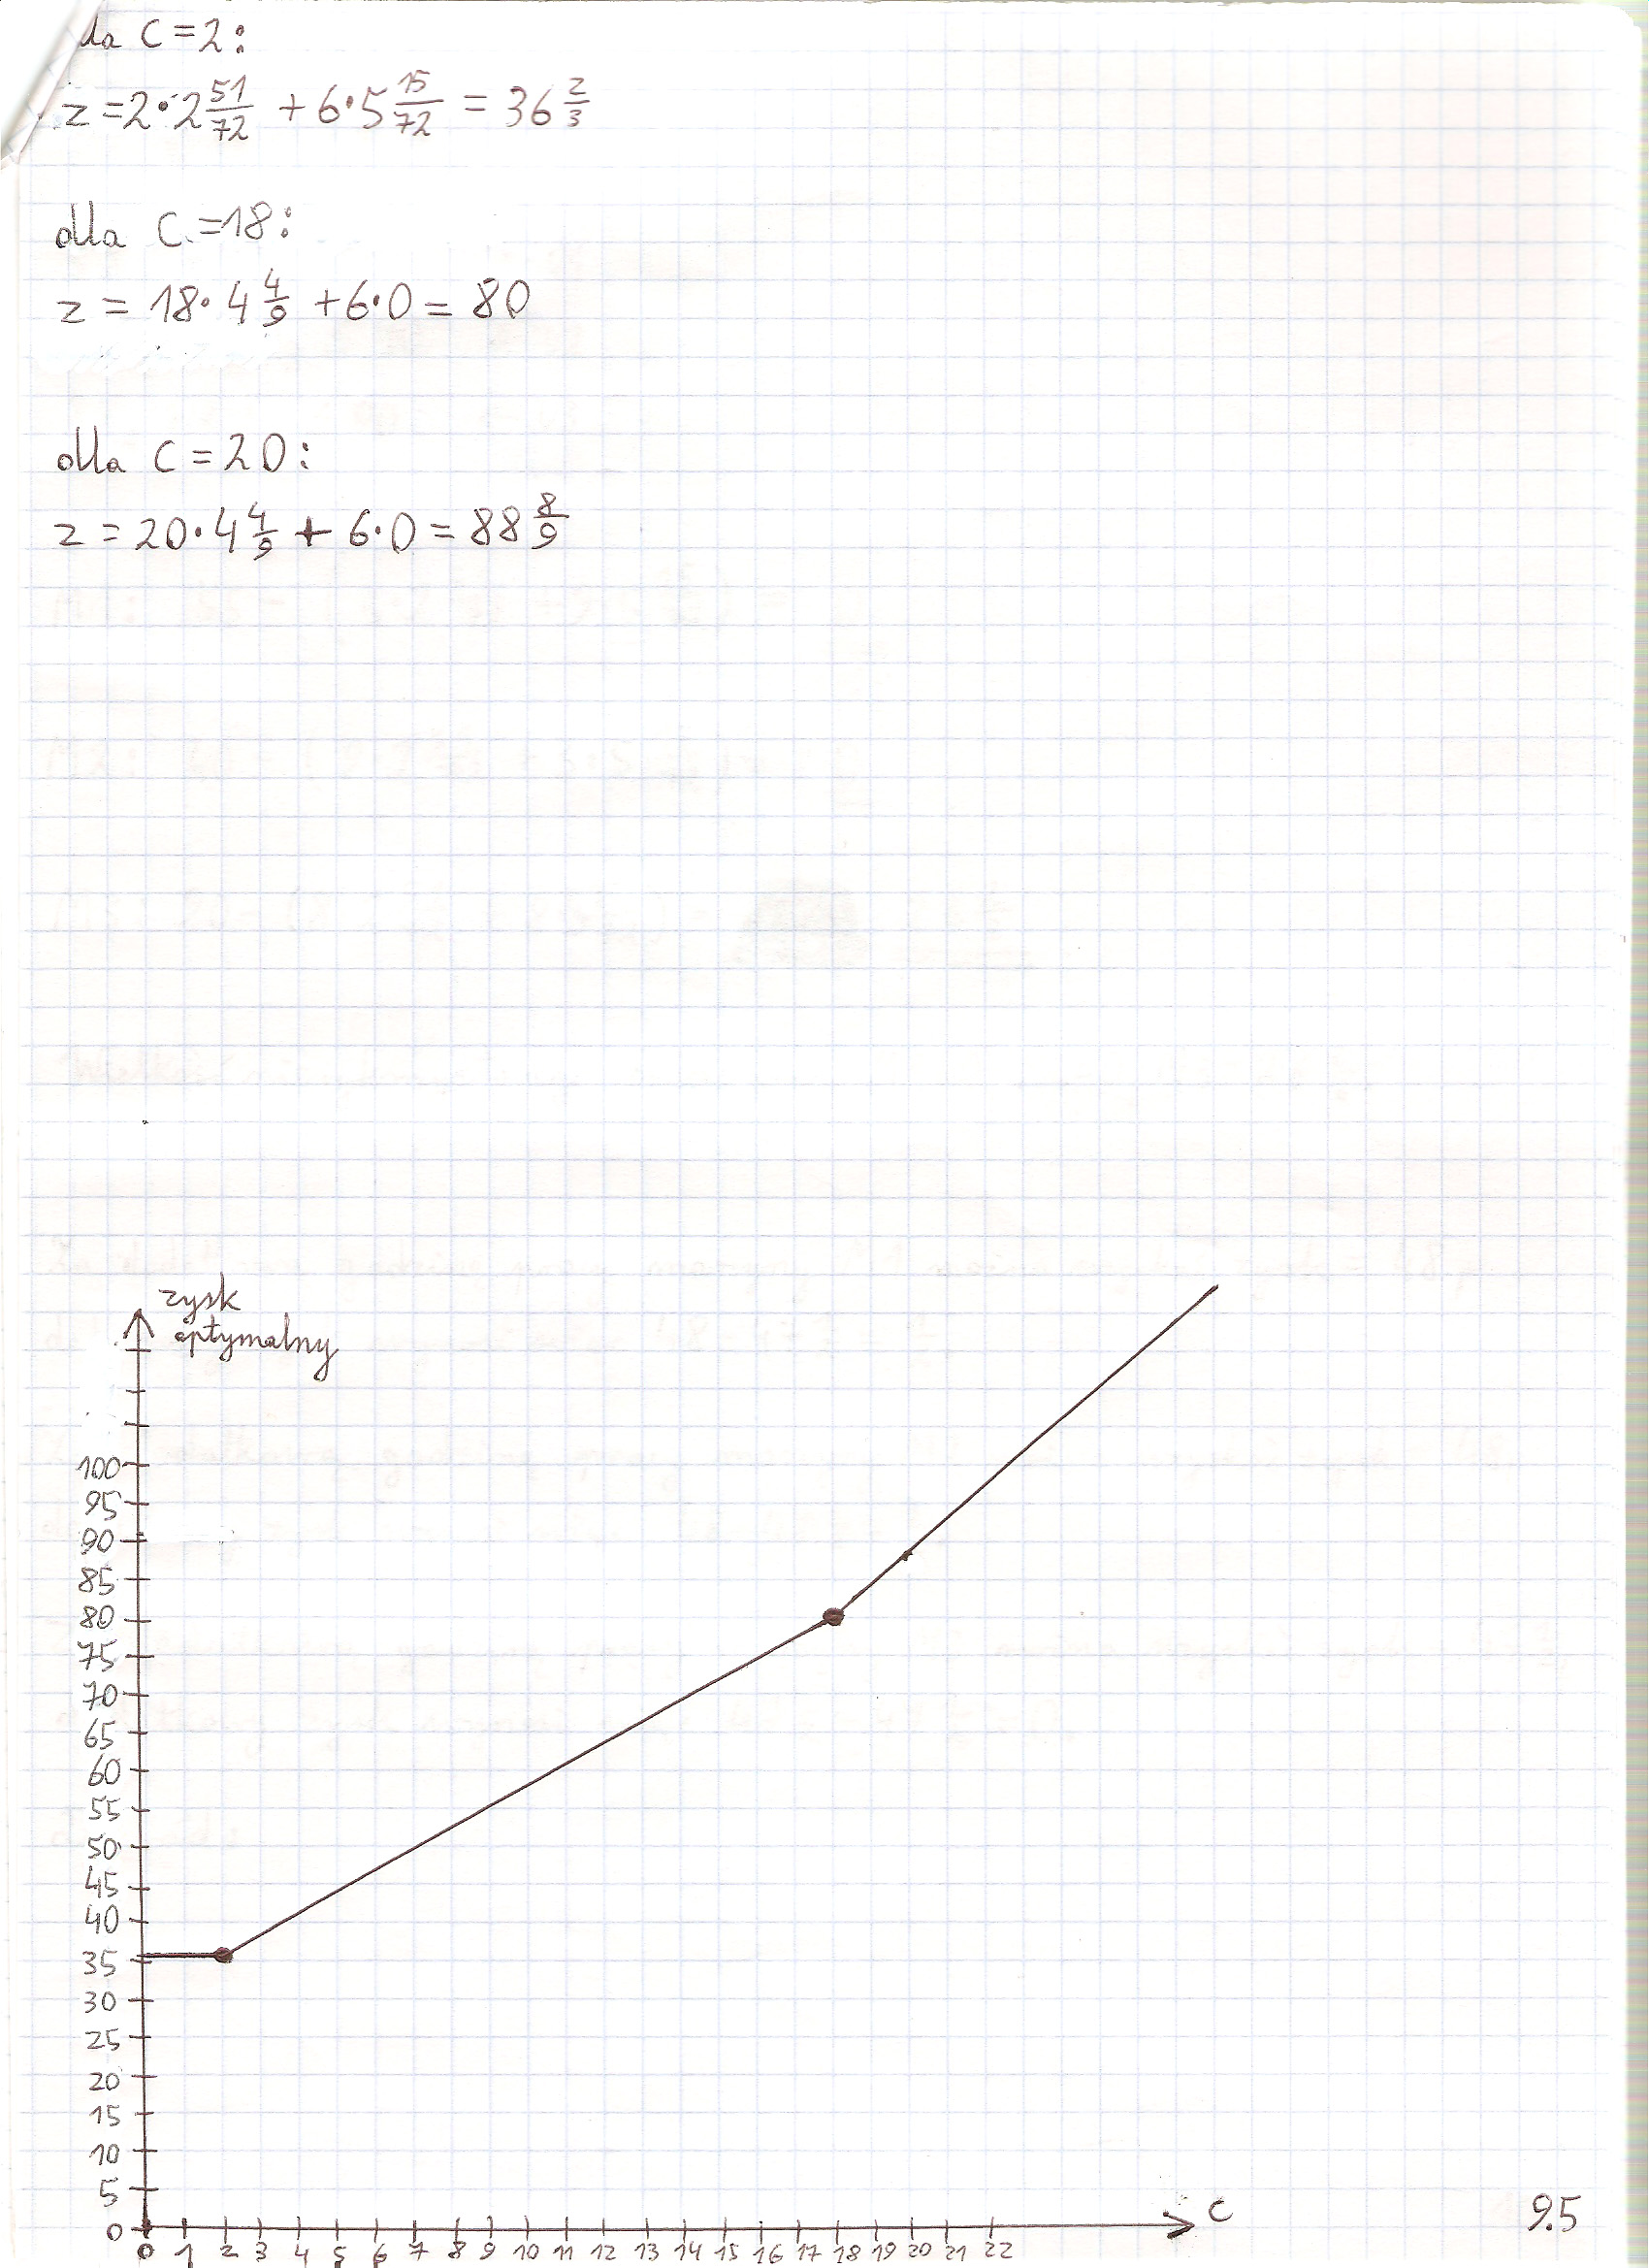 dla C = 2:
z = 2 • 2 51/72 + 6 • 5 15/72 = 36 2/3
dla C = 18:
z = 18 • 4 4/9 + 6 • 0 = 80
dla C = 20:
z = 20 • 4 4/9 + 6 • 0 = 88 8/9
zysk
optymalny
100
95
90
85
80
75
70
65
60
55
50
45
40
35
30
25
20
15
10
5
0
C
0 1 2 3 4 5 6 7 8 9 10 11 12 13 14 15 16 17 18 19 20 21 22
9.5